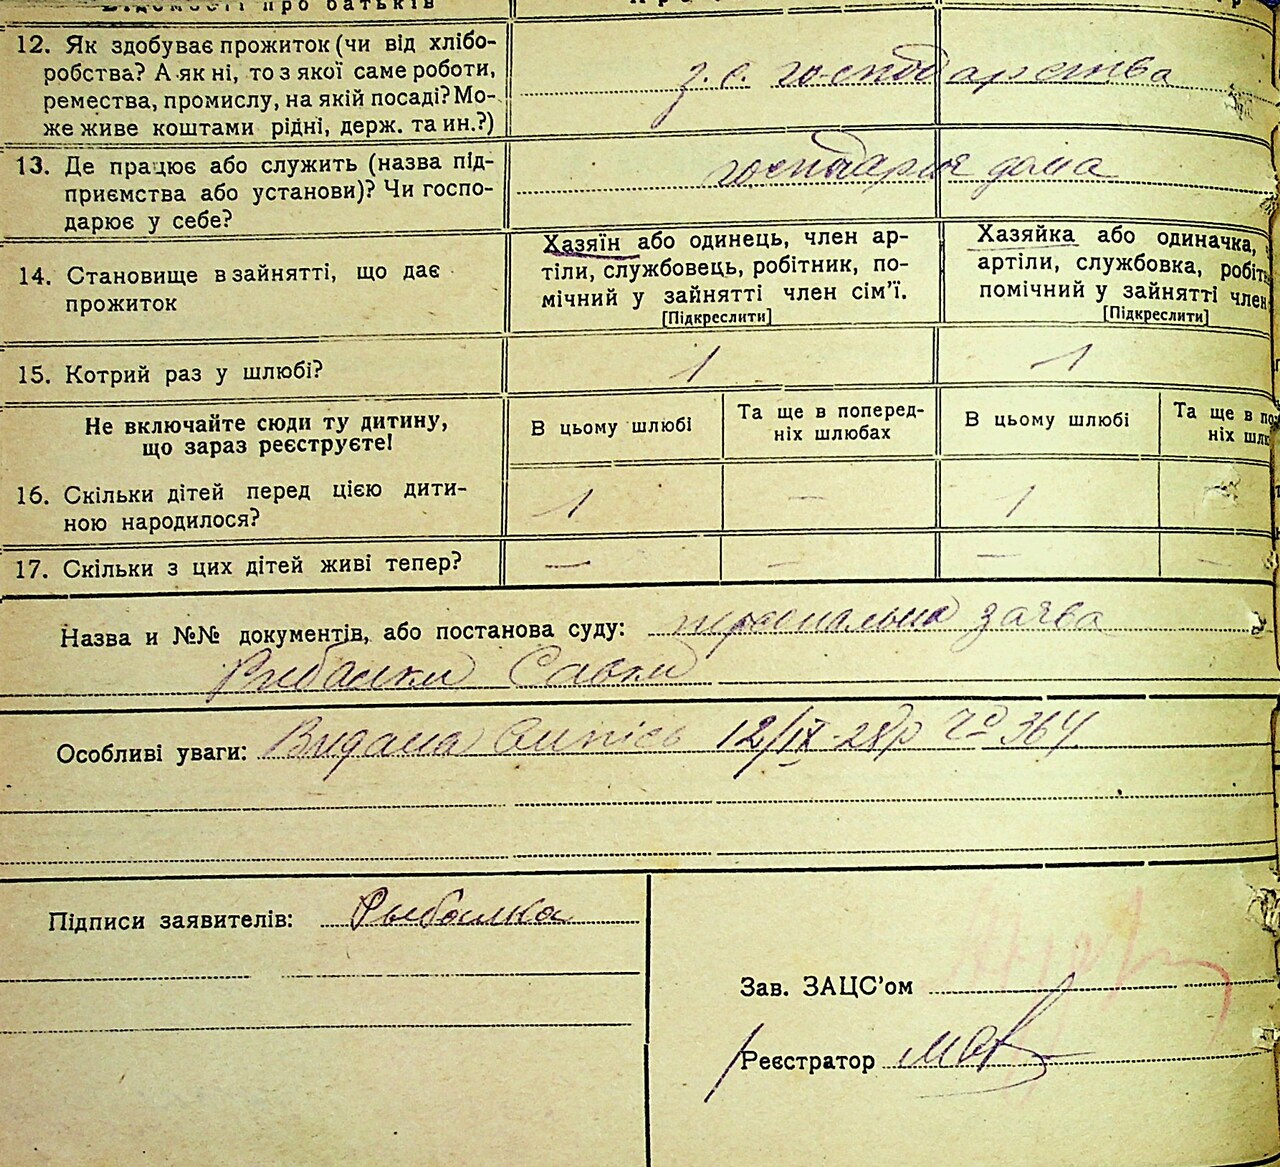 Відомості про батьків
12. Як здобуває прожиток (чи від хлібо-
робства? А як ні, то з якої саме роботи,
ремества, промислу, на якій посаді? Мо-
же живе коштами рідні, держ. та ин.?)
з. с. господарства
13. Де працює або служить (назва під-
приємства або установи)? Чи госпо-
дарює у себе?
господарює дома
14. Становище в зайнятті, що дає
прожиток
Хазяїн або одинець, член ар-
тіли, службовець, робітник, по-
мічний у зайнятті член сім’ї.
[Підкреслити]
Хазяйка або одиначка,
артіли, службовка, робіт
помічний у зайнятті член
[Підкреслити]
15. Котрий раз у шлюбі?
1
1
Не включайте сюди ту дитину,
що зараз реєструєте!
В цьому шлюбі
Та ще в поперед-
ніх шлюбах
В цьому шлюбі
Та ще в по
ніх шлю
16. Скільки дітей перед цією дити-
ною народилося?
1 — 1
17. Скільки з цих дітей живі тепер?
— — — —
Назва и №№ документів, або постанова суду: персональна заява
Рибалки Савки
Особливі уваги: Видана 12/IX-28р № 364
Підписи заявителів: Рыбалка
Зав. ЗАЦС’ом
Реєстратор